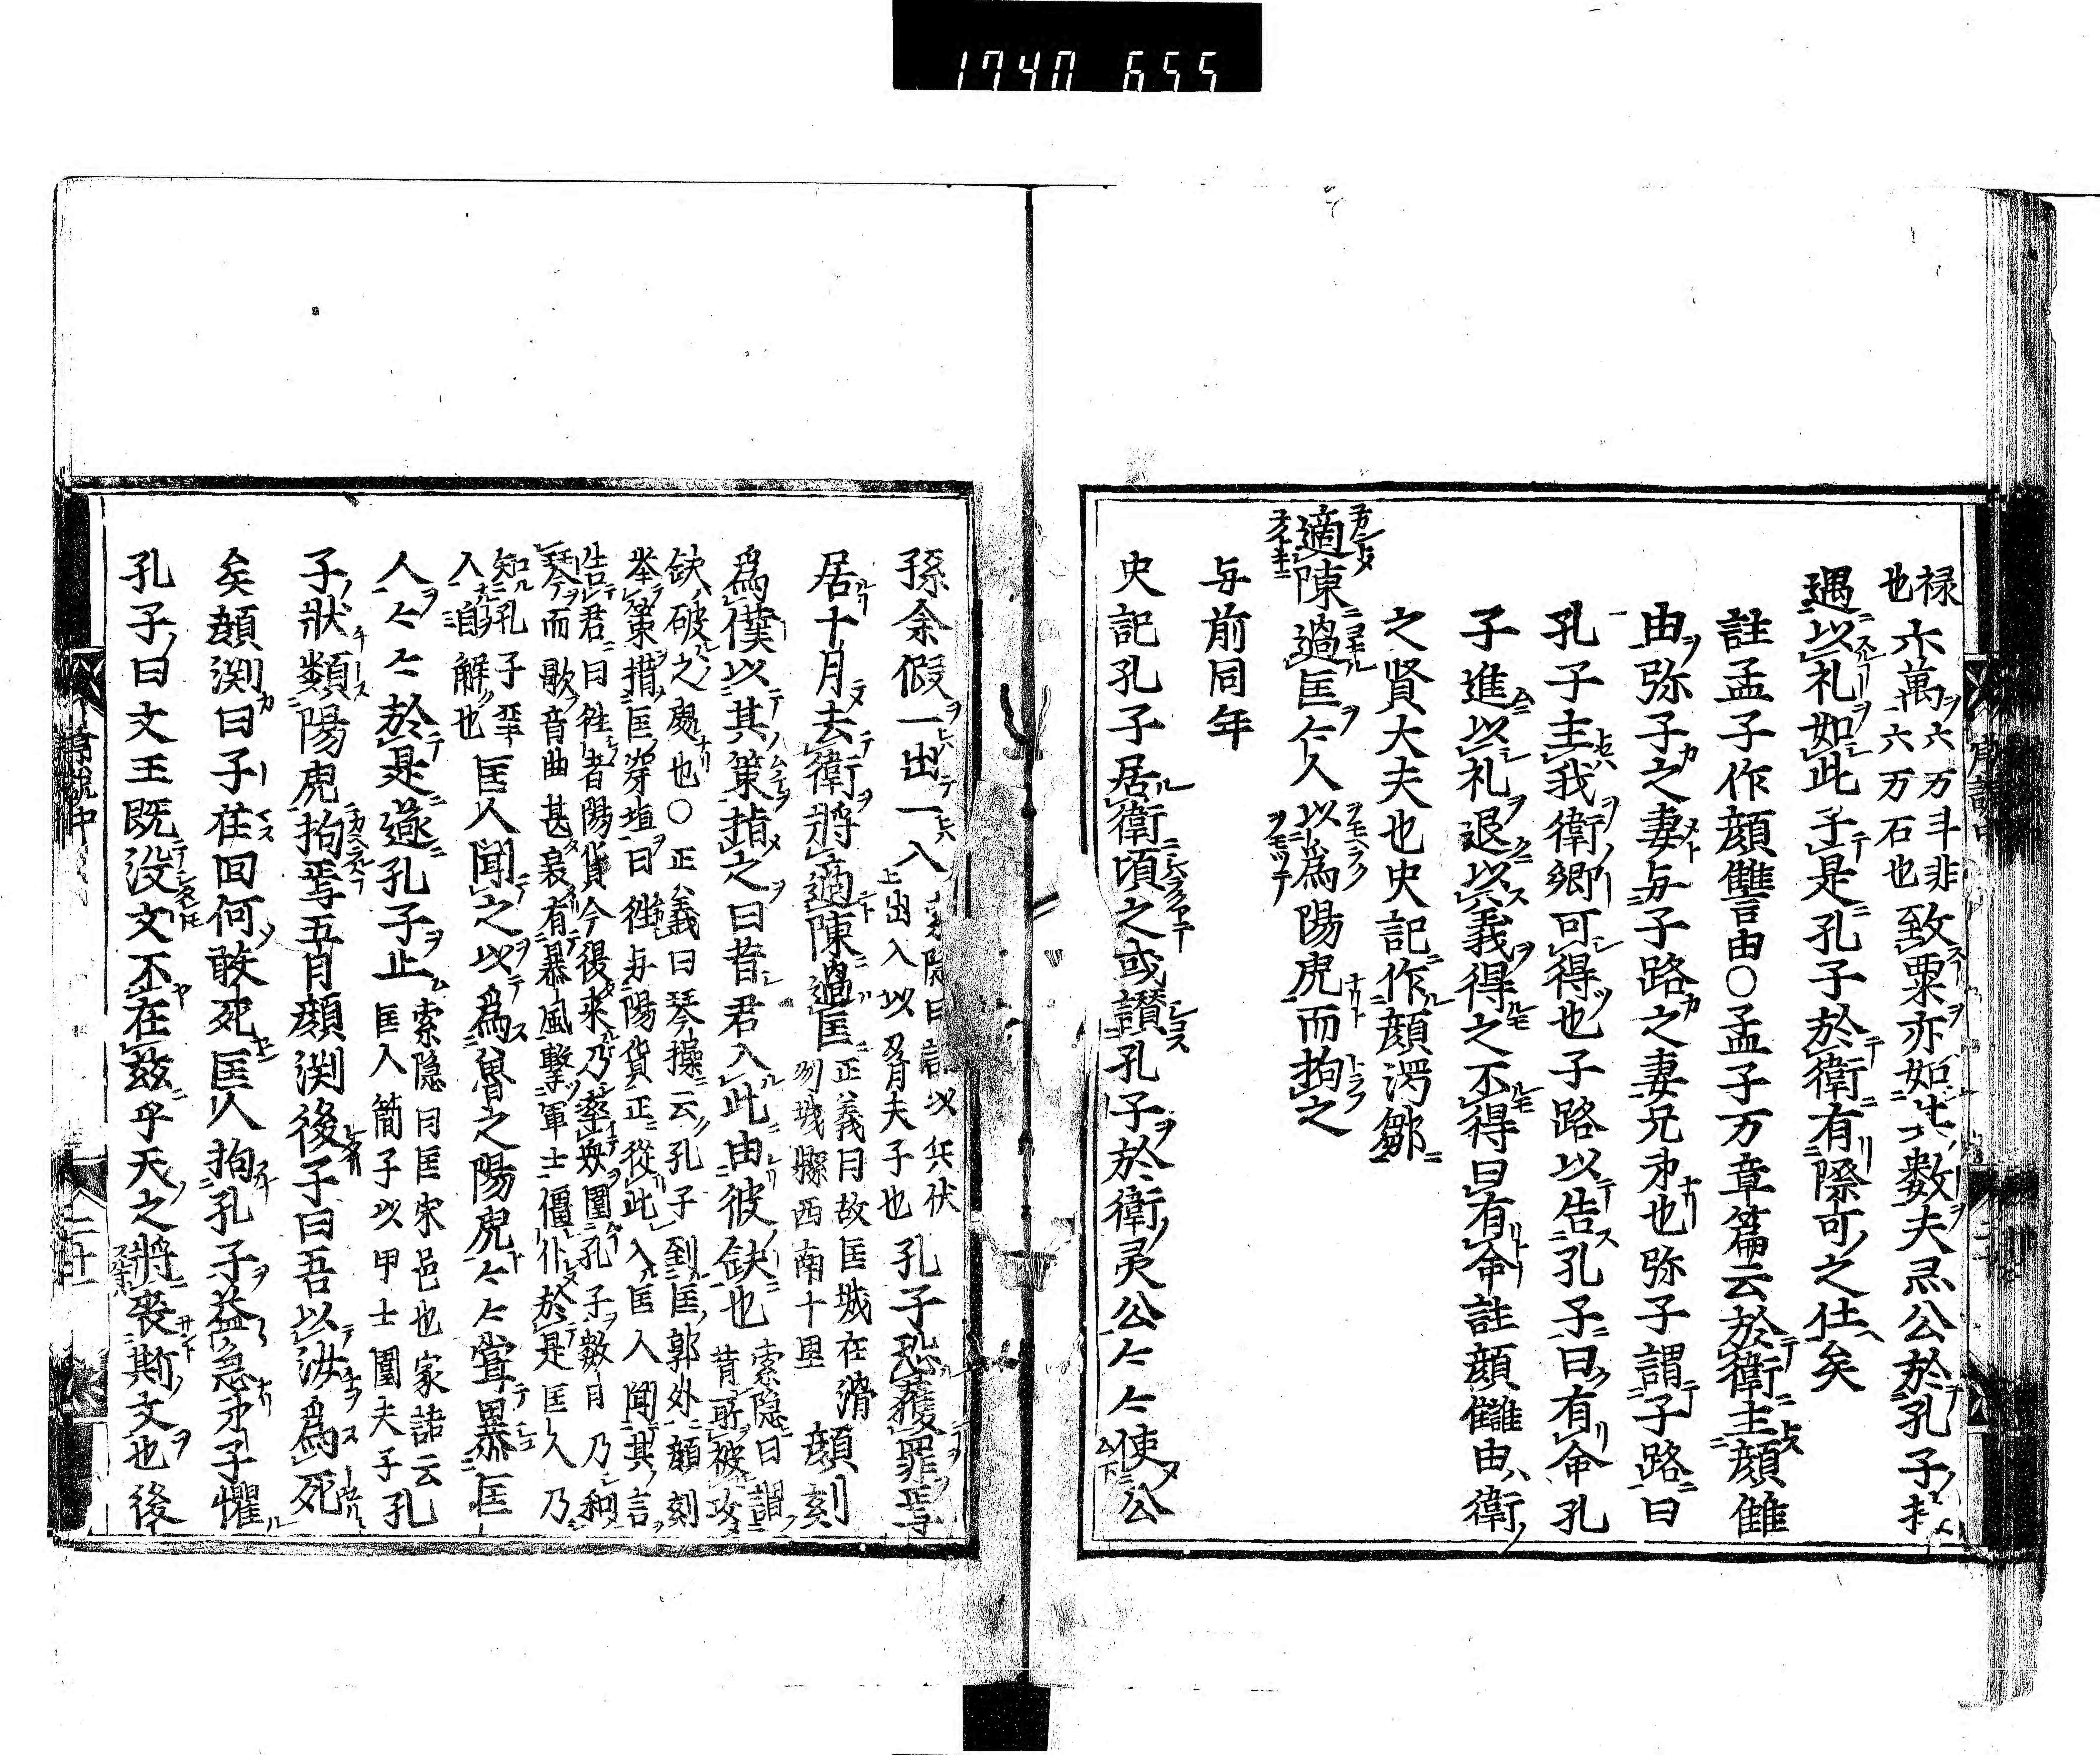 1740 655
禄六万斗非
也六万石也
六萬
致粟亦如其数夫㚑公於孔子
遇以礼如此子是孔子於衛有際可之仕矣
註孟子作顔讐由○孟子万章篇云於衛主顔雔
由弥子之妻与子路之妻兄弟也弥子謂子路曰
孔子主我衛卿可得也子路以告孔子曰有命孔
子進以礼退以義得之不得曰有命註顔雔由衛
之賢大夫也史記作顔濁鄒
適陳過匡匡人以為陽虎而拘之
与前同年
史記孔子居衛頃之或讃孔子於衛㚑公々々使公
孫余假一出一入
索隠曰謂以兵伏
出入以脅夫子也
孔子恐獲罪焉
居十月去衛将適陳過匡
正義曰故匡城在滑
州城縣西南十里
顔刻
為僕以其策指之曰昔吾入此由彼缺也
索隠曰謂
昔所被攻
缺破之處也○正義曰琴操云孔子到匡郭外顔刻
挙策措匡穿垣曰往与陽貨正從此入匡人聞其言
告君曰往者陽貨今復来乃率衆圍孔子數日乃和
琴而歌音曲甚哀有暴風擊軍士僵仆於是匡人乃
知孔子聖
人自解也
匡人聞之以為魯之陽虎々々嘗暴匡
人々々於是遂孔子止
索隠曰匡宋邑也家語云
匡人簡子以甲士圍夫子
孔
子狀類陽虎拘焉五日顔渕後子曰吾以汝為死
矣顔渕曰子在回何敢死匡人拘孔子益急弟子懼
孔子曰文王既没文不在茲乎天之將喪斯文也後
二十一